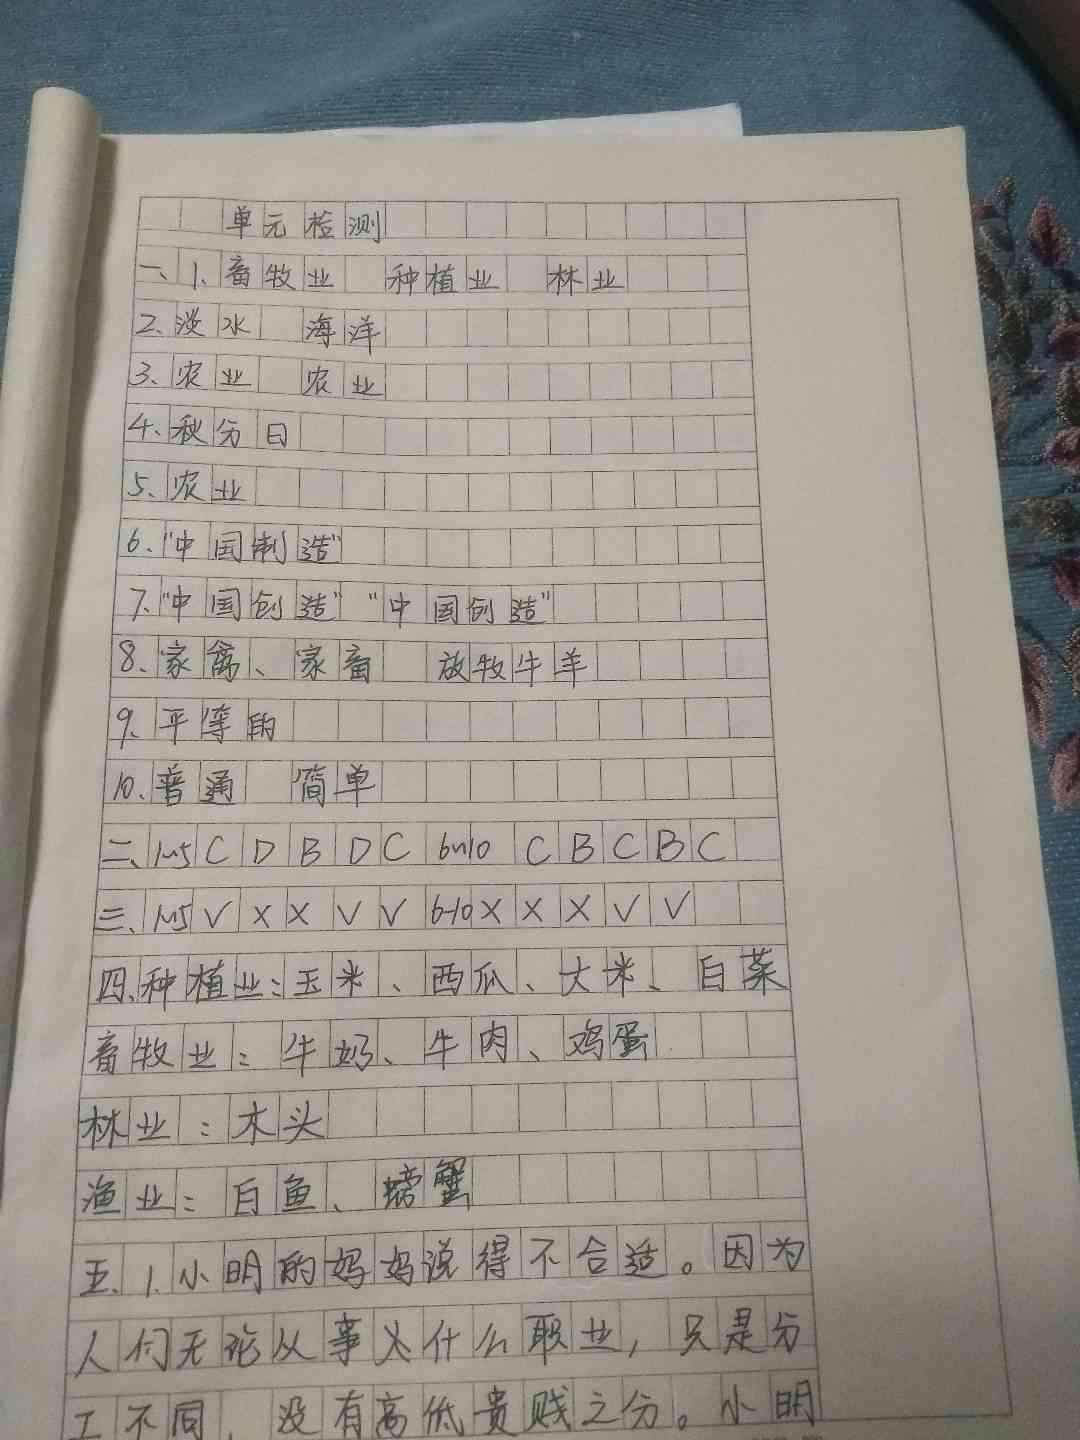 单元检测
一、1、畜牧业 种植业 林业
2、淡水 海洋
3、农业 农业
4、秋分日
5、农业
6、"中国制造"
7、"中国创造" "中国创造"
8、家禽、家畜 放牧牛羊
9、平等的
10、普通 简单
二、1~5 C D B D C 6~10 C B C B C
三、1~5 √ X X √ √ 6-10 X X X √ √
四、种植业：玉米、西瓜、大米、白菜
畜牧业：牛奶、牛肉、鸡蛋
林业：木头
渔业：白鱼、螃蟹
五、1、小明的妈妈说得不合适。因为
人们无论从事什么职业，只是分
工不同，没有高低贵贱之分。小明